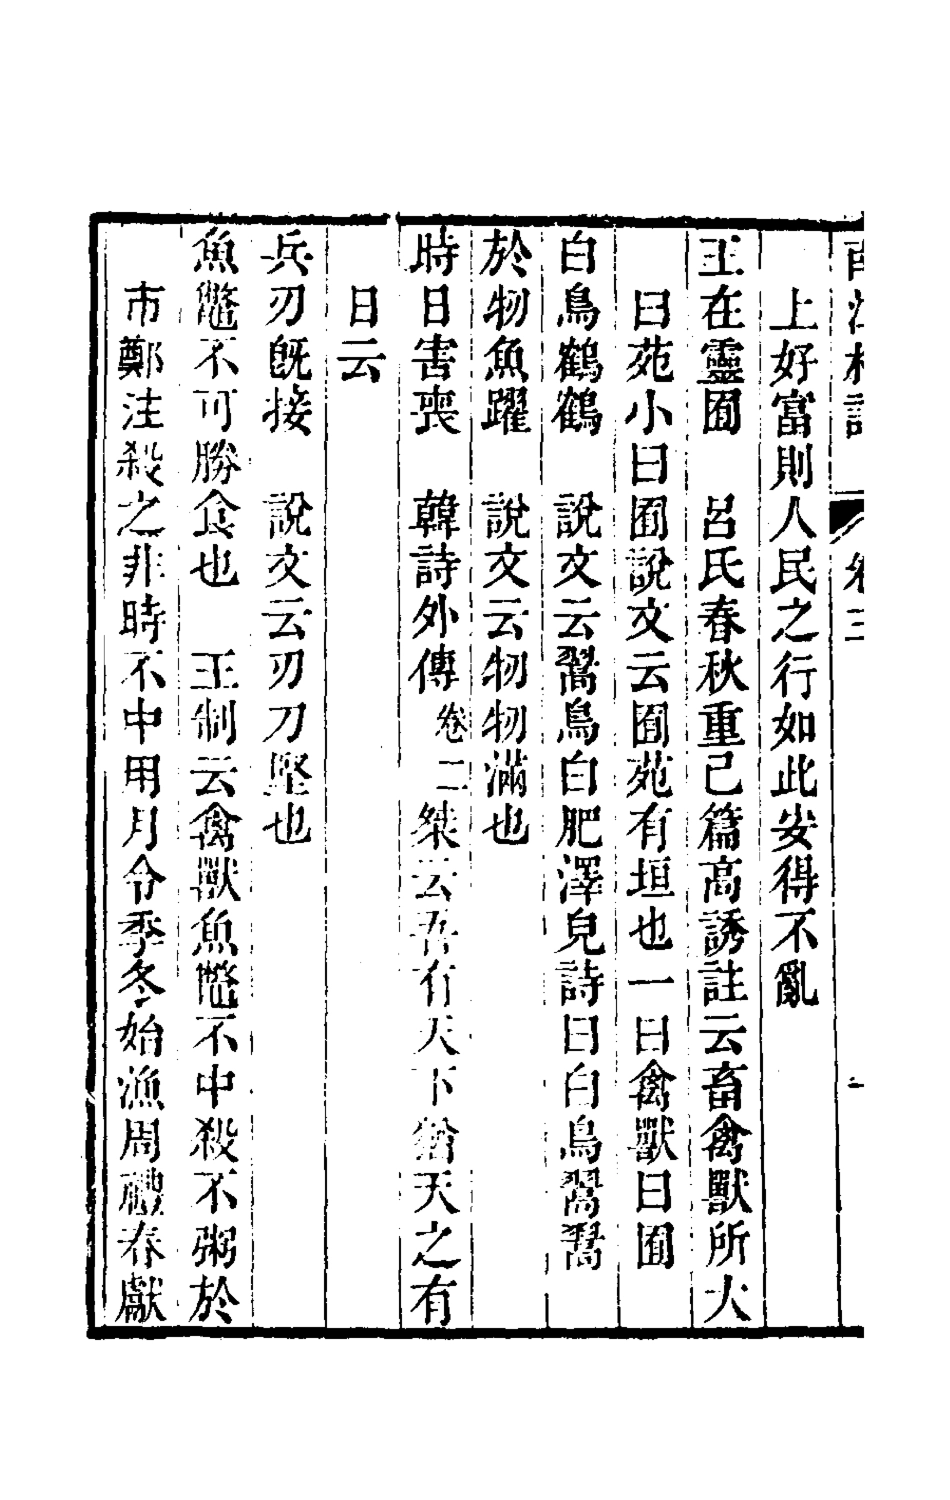 南江札記 卷三 一
上好富則人民之行如此安得不亂
王在靈囿 呂氏春秋重己篇高誘註云畜禽獸所大
曰苑小曰囿說文云囿苑有垣也一曰禽獸曰囿
白鳥鶴鶴 說文云翯鳥白肥澤皃詩曰白鳥翯翯
於牣魚躍 說文云牣牣滿也
時日害喪 韓詩外傳卷二桀云吾有天下猶天之有
日云
兵刃旣接 說文云刃刀堅也
魚鼈不可勝食也 王制云禽獸魚鼈不中殺不粥於
市鄭注殺之非時不中用月令季冬始漁周禮春獻